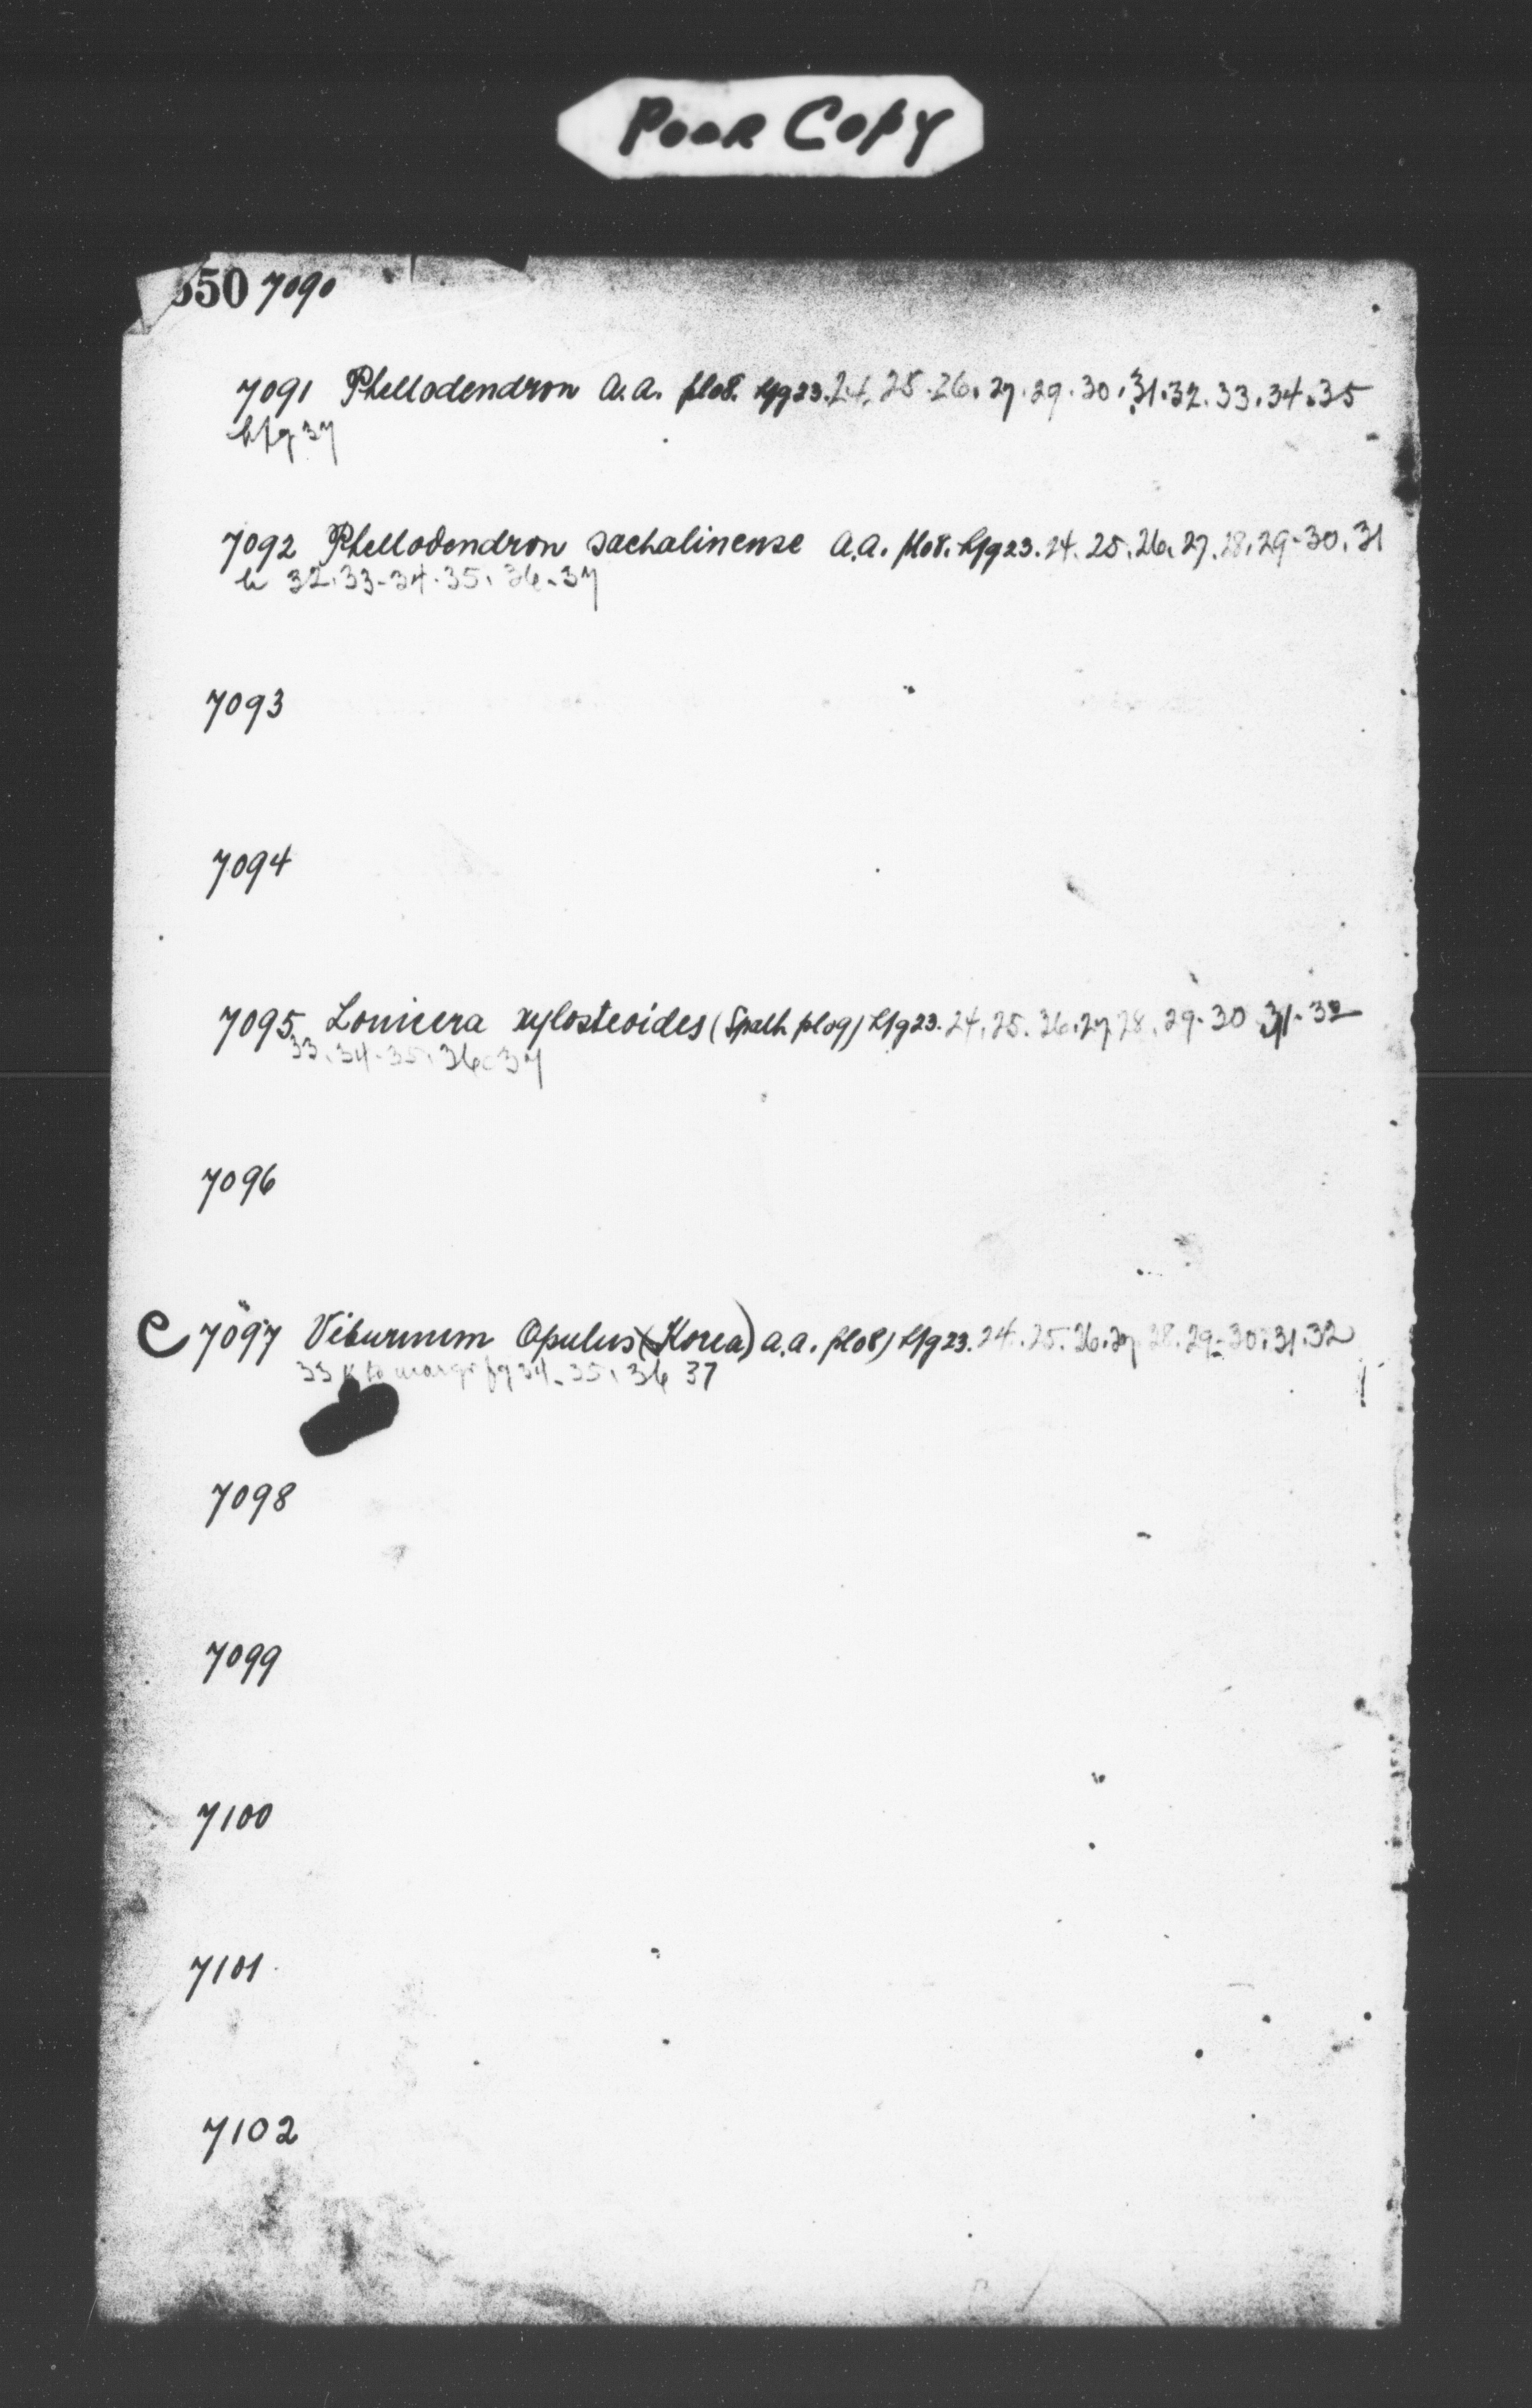 Poor Copy
550 7090
7091 Phellodendron a.a. pl08. h/g23.24.25.26.27.29.30.31.32.33.34.35
h/g 37
7092 Phellodendron sachalinense a.a. pl08. h/g23.24.25.26.27.28.29-30.31
h 32.33-34.35.36-37
7093
7094
7095 Lonicera xylosteoides (Spath pl09) h/g23.24.25.26.27.28.29-30 31-32
33.34-35.36.37
7096
C 7097 Viburnum Opulus (Korea) a.a. pl08) h/g23.24.25.26.27.28.29-30.31.32
33 to fg 34-35.36 37
7098
7099
7100
7101
7102